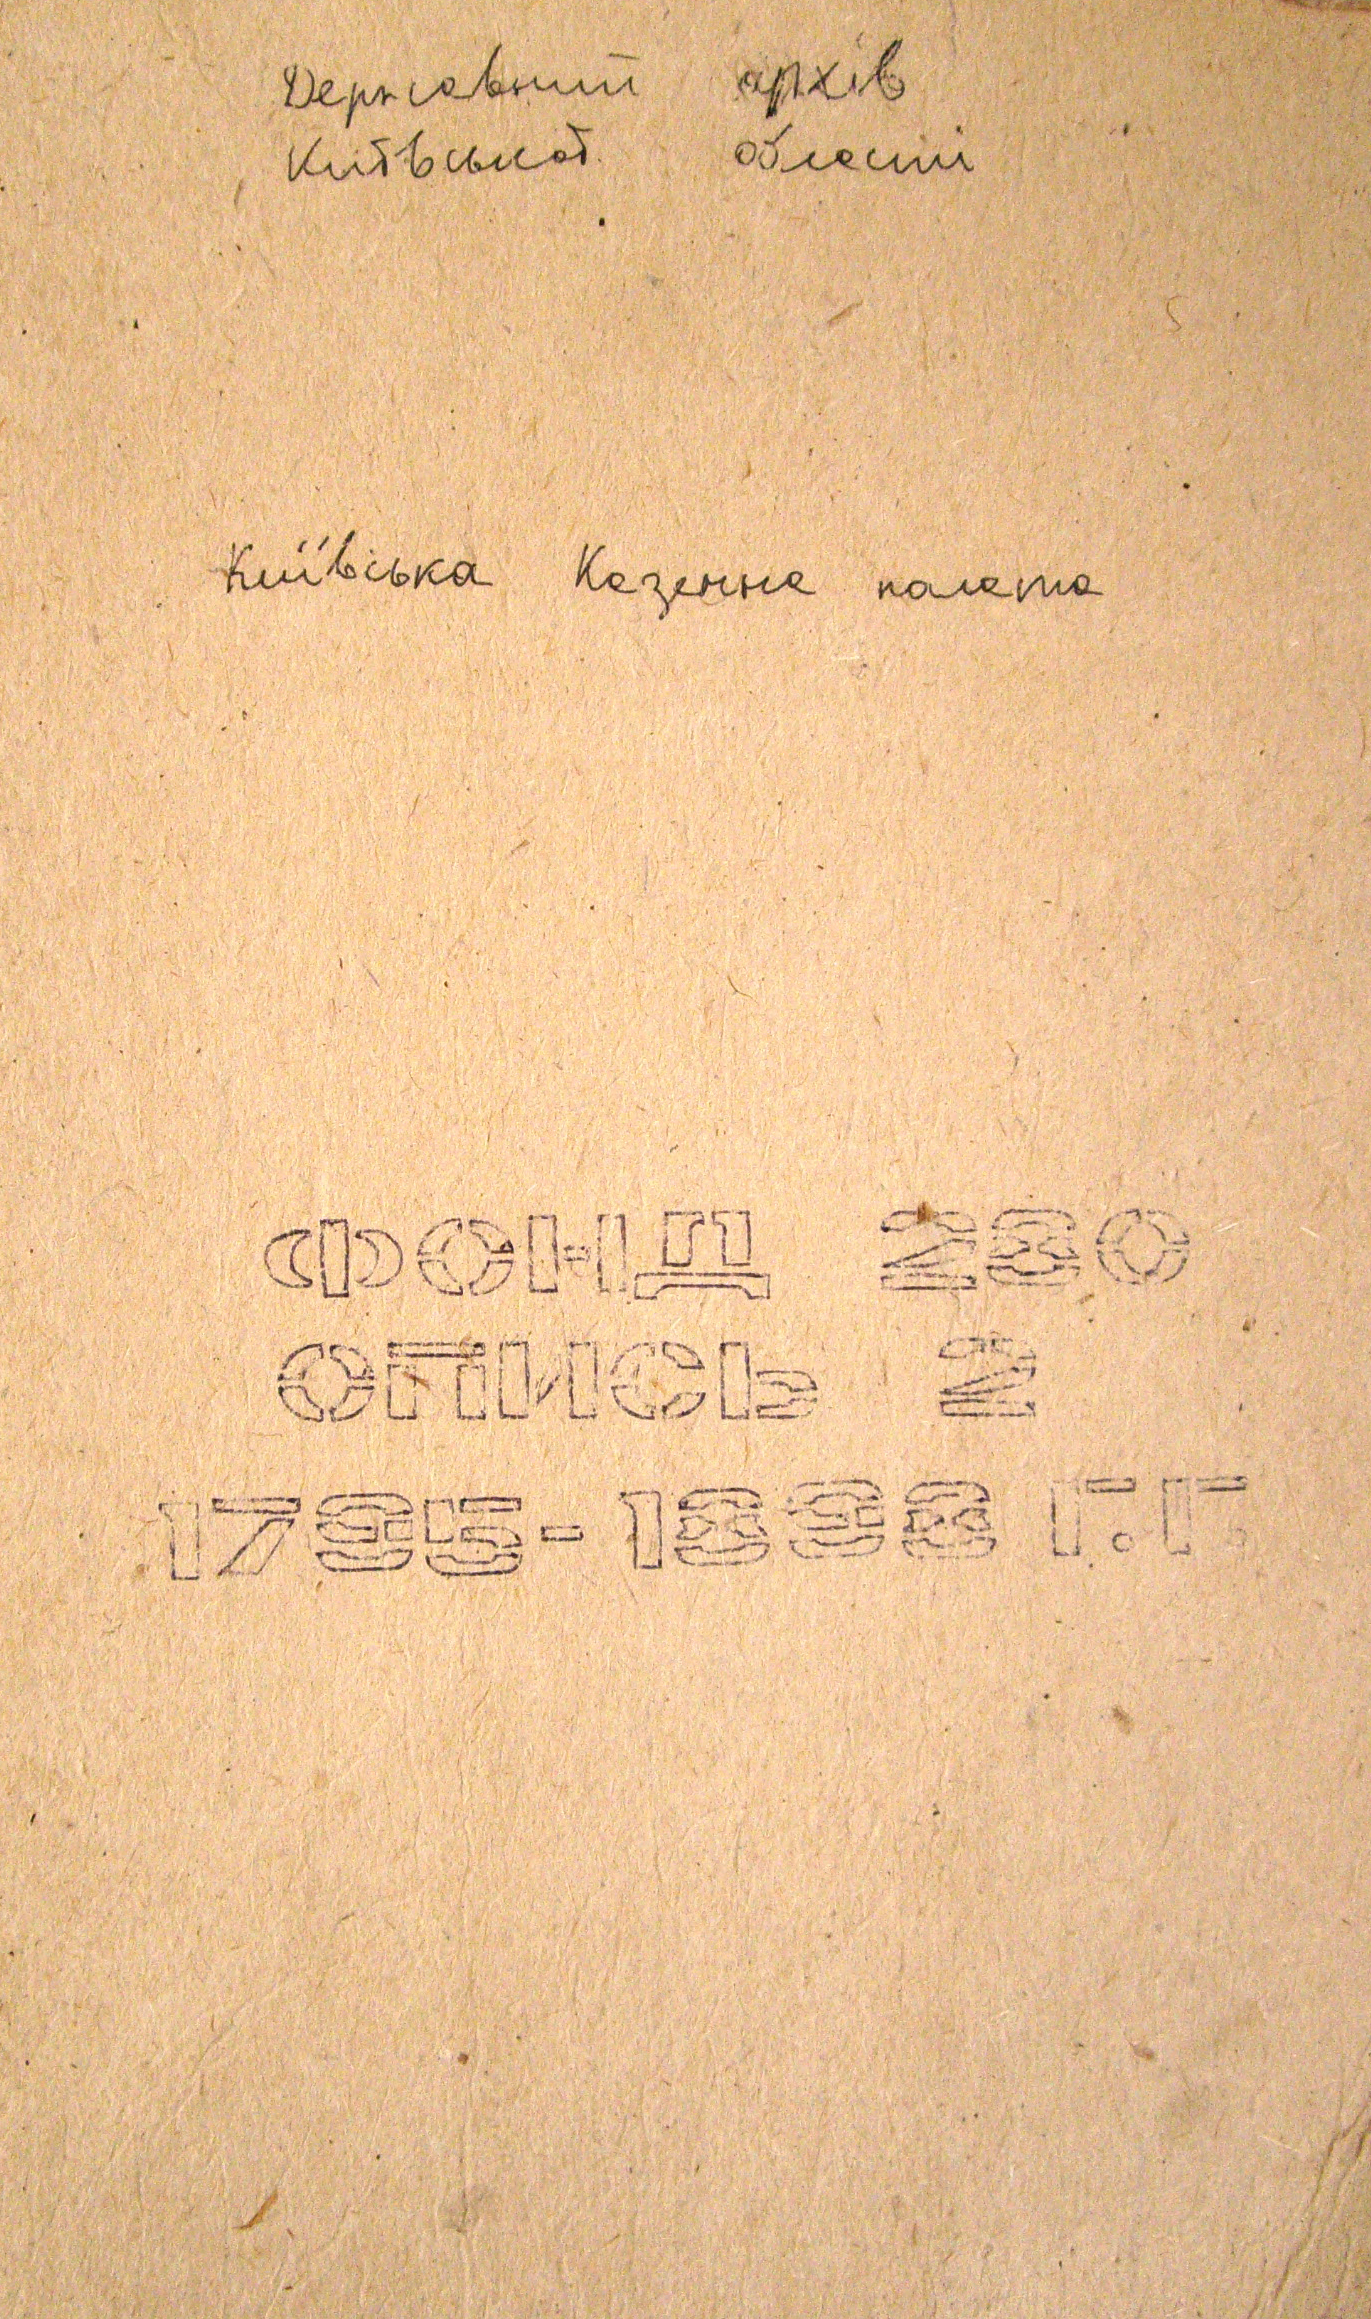 Державний архів
Київської області
Київська Казенна палата
ФОНД 280
ОПИСЬ 2
1795-1898 Г.Г.